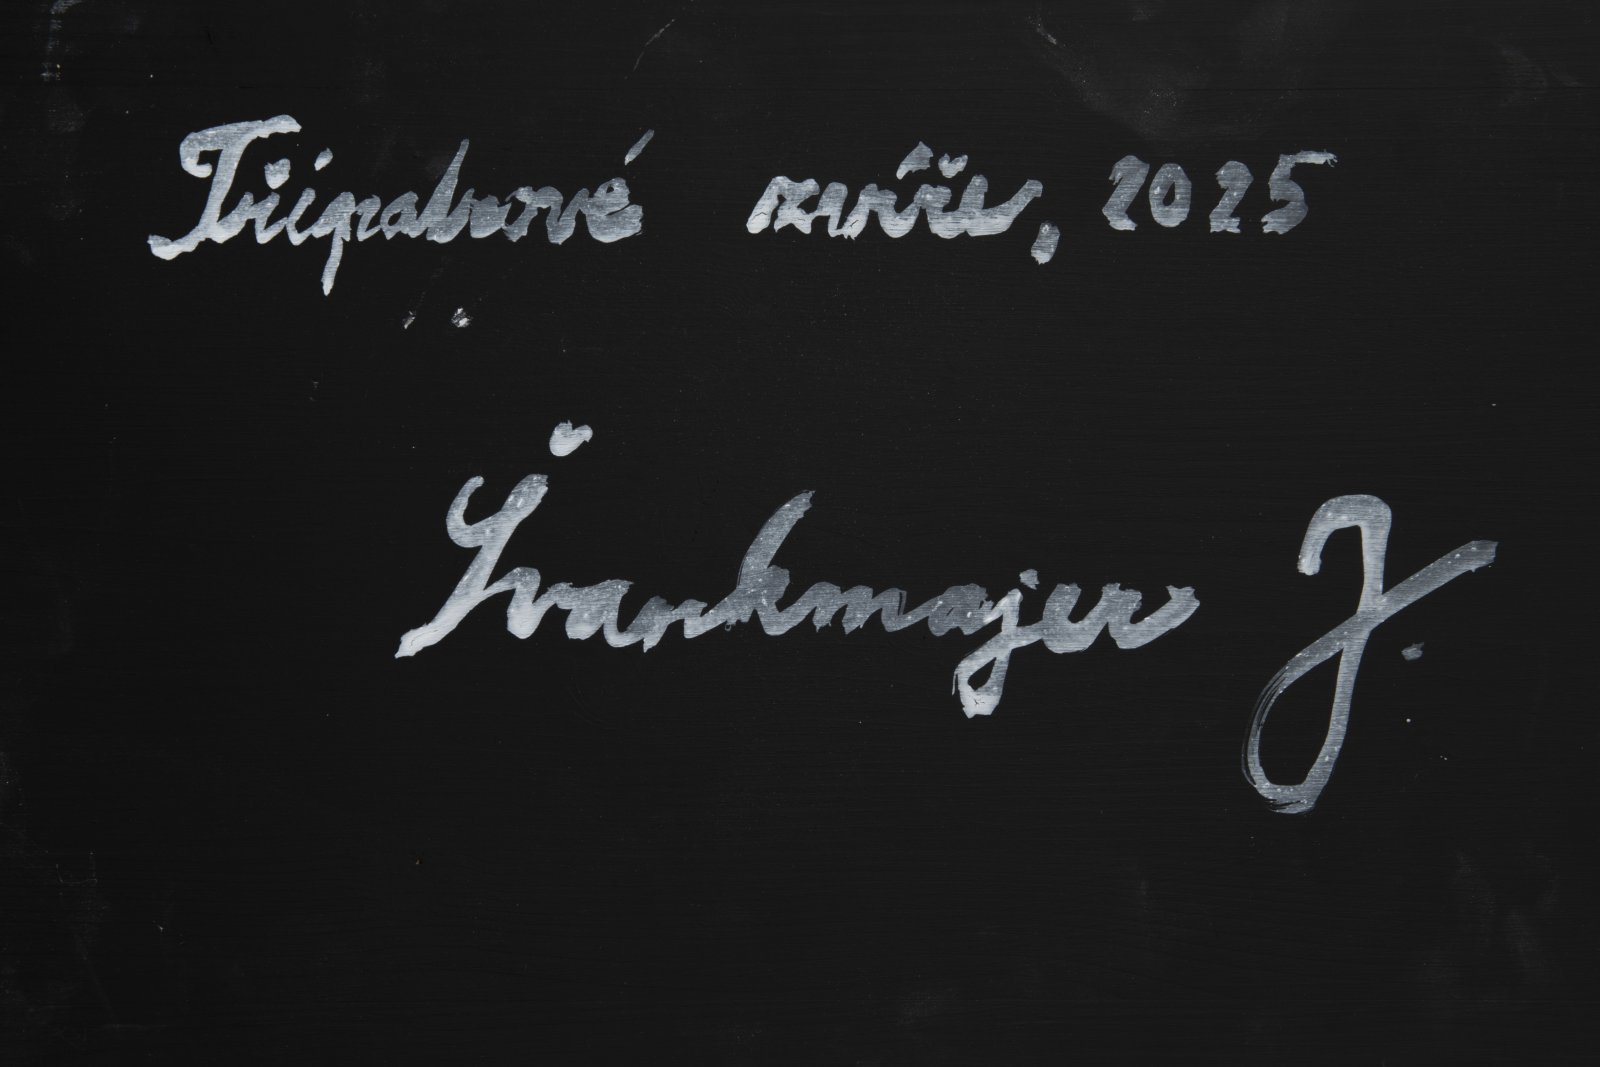 Třípatrové zvíře, 2025
Švankmajer J.